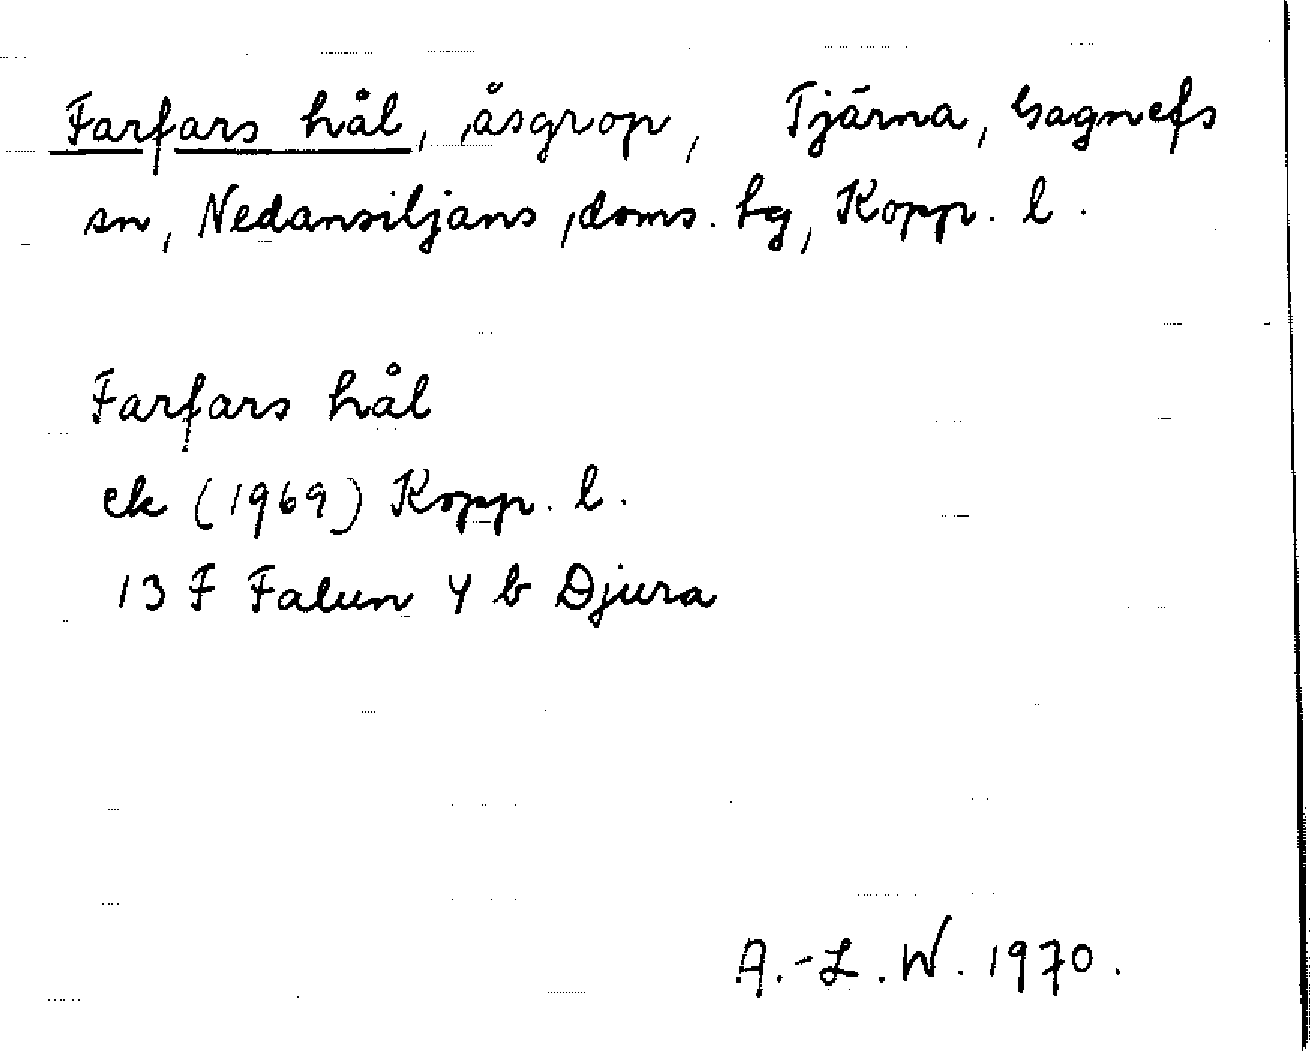 Farfars hål, åsgrop, Tjärna, Gagnefs
sn, Nedansiljans doms. hg, Kopp. l.
Farfars hål
ek (1969) Kopp. l.
13 F Falun 4 b Djura
A.-L. W. 1970.